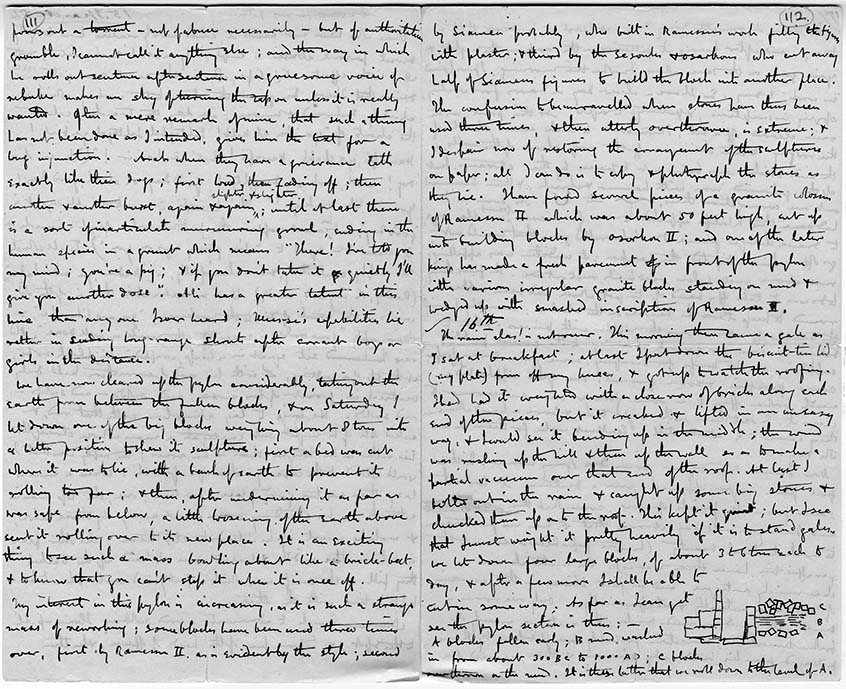 111
pours out a torrent – not of abuse necessarily – but of authoritative
grumble, I cannot call it anything else; and the way in which
he rolls out sentence after sentence in a gruesome voice of
rebuke makes one shy of turning the tap on unless it is really
wanted. Often a mere remark of mine that such a thing
has not been done as I intended, gives him the text for a
long injunction. And when they have a grievance tell
exactly like their dogs; first loud, then fading off; then
slighter & slighter
another & another burst, again & again, ; until at last there
is a sort of inarticulate murmuring growl; ending in the
human species in a grunt which means "There! I've told you
my mind; you're a pig; & if you don't take it quietly I'll
give you another dose". Ali has a greater talent in this
line than any one I ever heard; capabilities lie
rather in sending long-range shouts after errant boys or
girls in the distance.
We have now cleared up the pylon considerably, taking out the
earth from between the fallen blocks, & on Saturday I
let down one of the big blocks weighing about 8 tons into
a better position to shew its sculpture; first a bed was cut
where it was to lie, with a bank of earth to prevent it
rolling too far; & then, after undermining it as far as
was safe from below, a little loosening of the earth above
sent it rolling over to its new place. It is an exciting
thing to see such a mass bowling about like a brick-bat
& to know that you can't stop it when it is once off.
My interest in this pylon is increasing, as it is such a strange
mass of reworking; some blocks have been used three times
over, first by Ramessu II. as is evident by the style; second
112
by Siamen probably, who built in Ramessu's work filling the figures
with plaster; & third by the Sesonks & Osorkons who cut away
half of Siamens figures to build the block into another place.
The confusion to be unravelled when stones have thus been
used three times, & then utterly overthrown, is extreme; &
I despair now of restoring the arrangement of the sculptures
on paper; all I can do is to copy & photograph the stones as
they lie. I have found several pieces of a granite colossus
of Ramessu II which was about 50 feet high, cut up
into building blocks by Osorkon II; and one of the later
kings has made a fresh pavement in front of the pylon
with various irregular granite blocks standing on mud &
wedged up with smashed inscriptions of Ramessu II.
16th
The rain alas! is not over. This morning there came a gale as
I sat at breakfast; at last I put down the biscuit-tin lid
(my plate) from off my knees, & got up to watch the roofing.
I had had it weighted with a close row of bricks along each
end of the pieces, but it creaked & lifted in an uneasy
way, & I could see it bending up in the middle; the wind
was rushing up the hill & then up the wall so as to make a
partial vacuum over that end of the roof. At last I
bolted out in the rain & caught up some big stones &
chucked them up on to the roof. This kept it quiet; but I see
that I must weight it pretty heavily if it is to stand gales.
We let down four large blocks, of about 3 to 6 tons each to
day, & after a few more I shall be able to
get in some way. As far as I can yet
see the pylon section is thus: –
A blocks fallen early; B mud, washed
in from about 300 BC to 1000 AD; C blocks
overthrown on the mud. It is these latter that we roll down to the level of A.
C
B
A